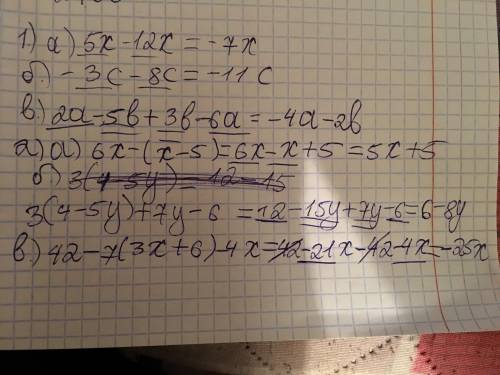 1) а) 5x-12x=-7x
б) -3c-8c=-11c
в.) 2a-5b+3b-6a=-4a-2b
2) а) 6x-(x-5)=6x-x+5=5x+5
б) 3(4-5y)=12-15
3(4-5y)+7y-6=12-15y+7y-6=6-8y
в.) 42-7(3x+6)-4x=42-21x-42-4x=-25x